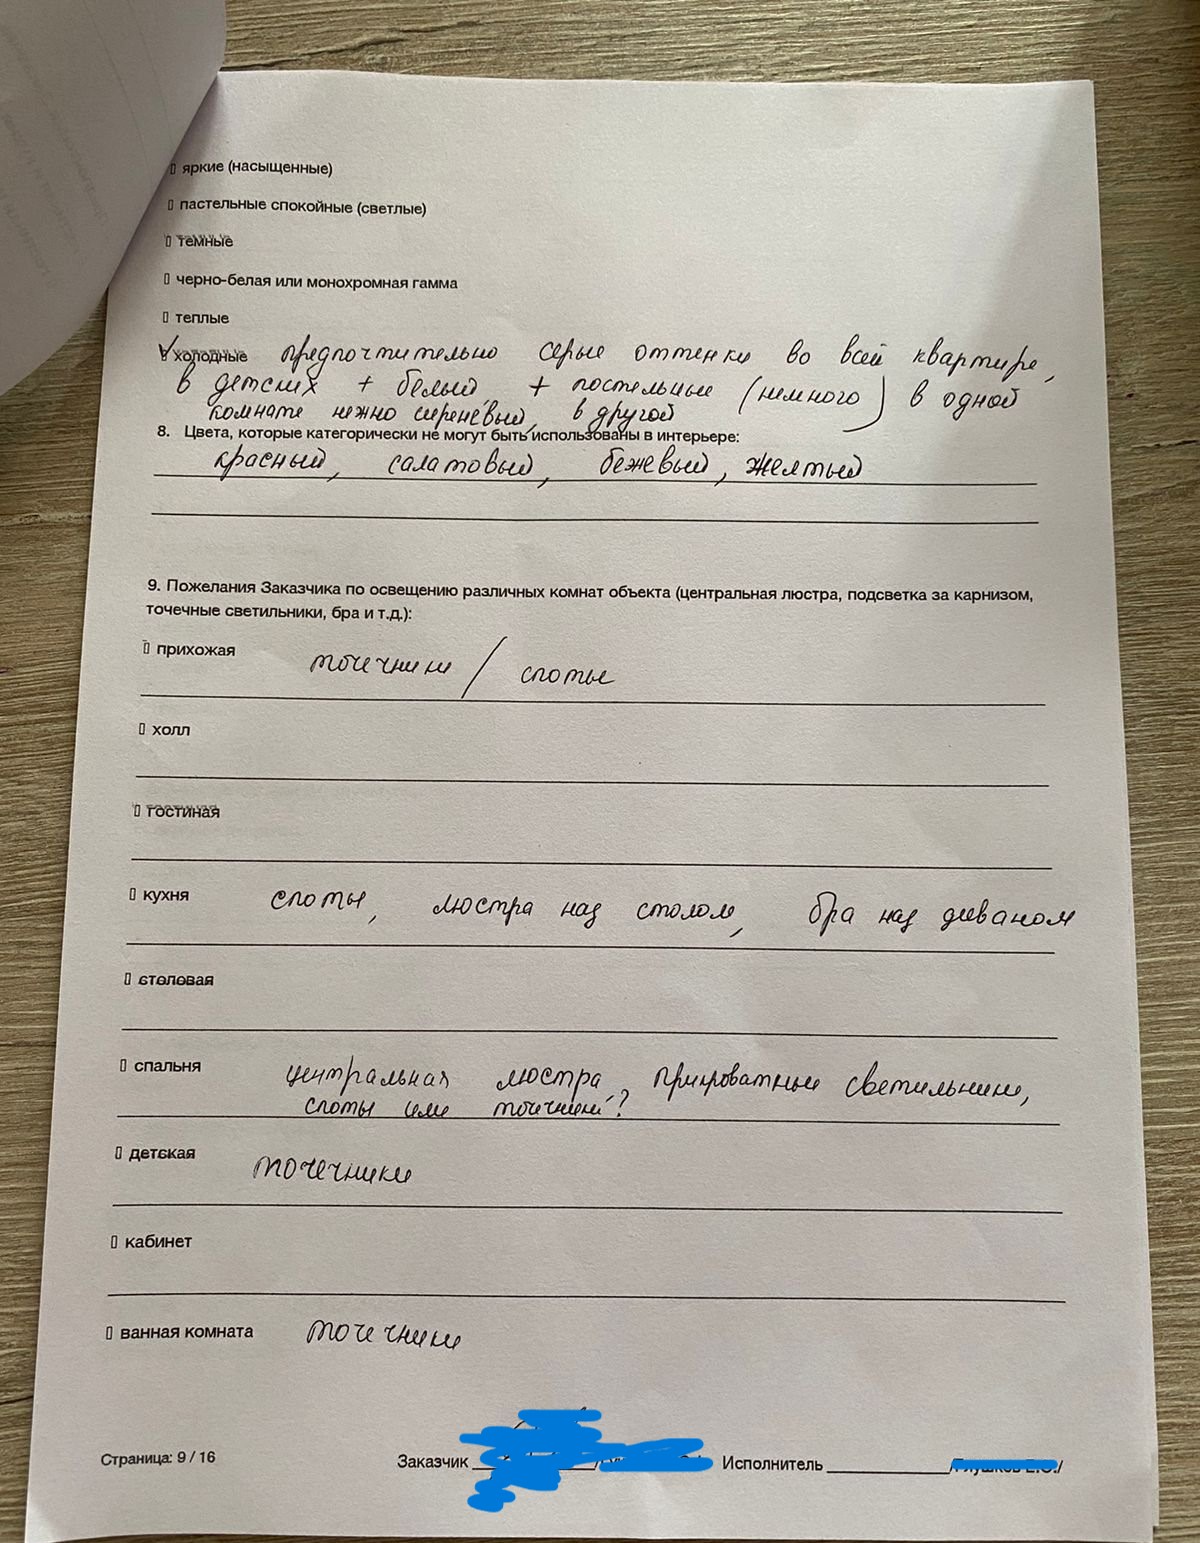 яркие (насыщенные)
пастельные спокойные (светлые)
темные
черно-белая или монохромная гамма
теплые
холодные предпочтительно серые оттенки во всей квартире,
в детских + белый + постельные (немного) в одной
комнате нежно сиреневый, в другой
8. Цвета, которые категорически не могут быть использованы в интерьере:
красный, салатовый, бежевый, желтый
9. Пожелания Заказчика по освещению различных комнат объекта (центральная люстра, подсветка за карнизом,
точечные светильники, бра и т.д.):
прихожая точечники / споты
холл
гостиная
кухня споты, люстра над столом, бра над диваном
столовая
спальня центральная люстра, прикроватные светильники,
споты или точечники?
детская точечники
кабинет
ванная комната точечники
Страница: 9 / 16 Заказчик Исполнитель